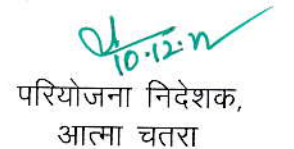 10.12.22
परियोजना निदेशक,
आत्मा चतरा